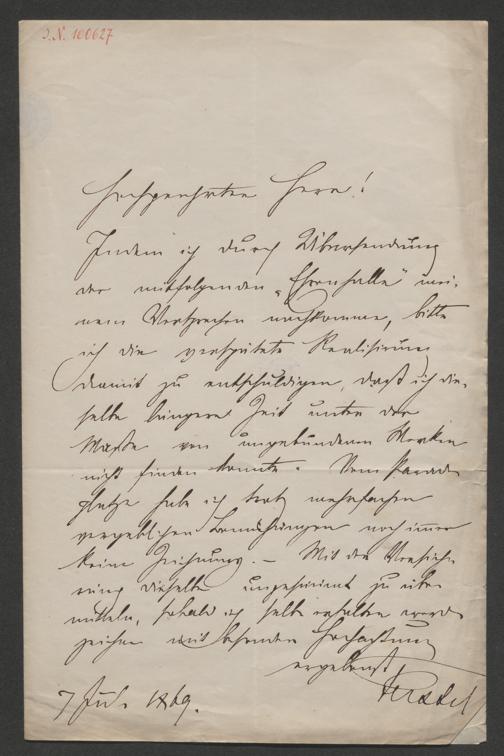 J.N. 100627
Hochgeehrter Herr!
Indem ich durch Übersendung
der mitfolgenden „Ehrenhalle" mei-
nem Versprechen nachkomme, bitte
ich die verspätete Realisirung
damit zu entschuldigen, daß ich die-
selbe längere Zeit unter der
Masse von ungebundenen Werken
nicht finden konnte. Vom Parade-
platze habe ich trotz mehrfachen
vergeblichen Bemühungen noch immer
keine Zeichnung. – Mit der Versiche-
rung dieselbe ungesäumt zu über-
mitteln, sobald ich selbe erhalten werde
zeichne mit besonderer Hochachtung
ergebenst
7 Juli 1869.